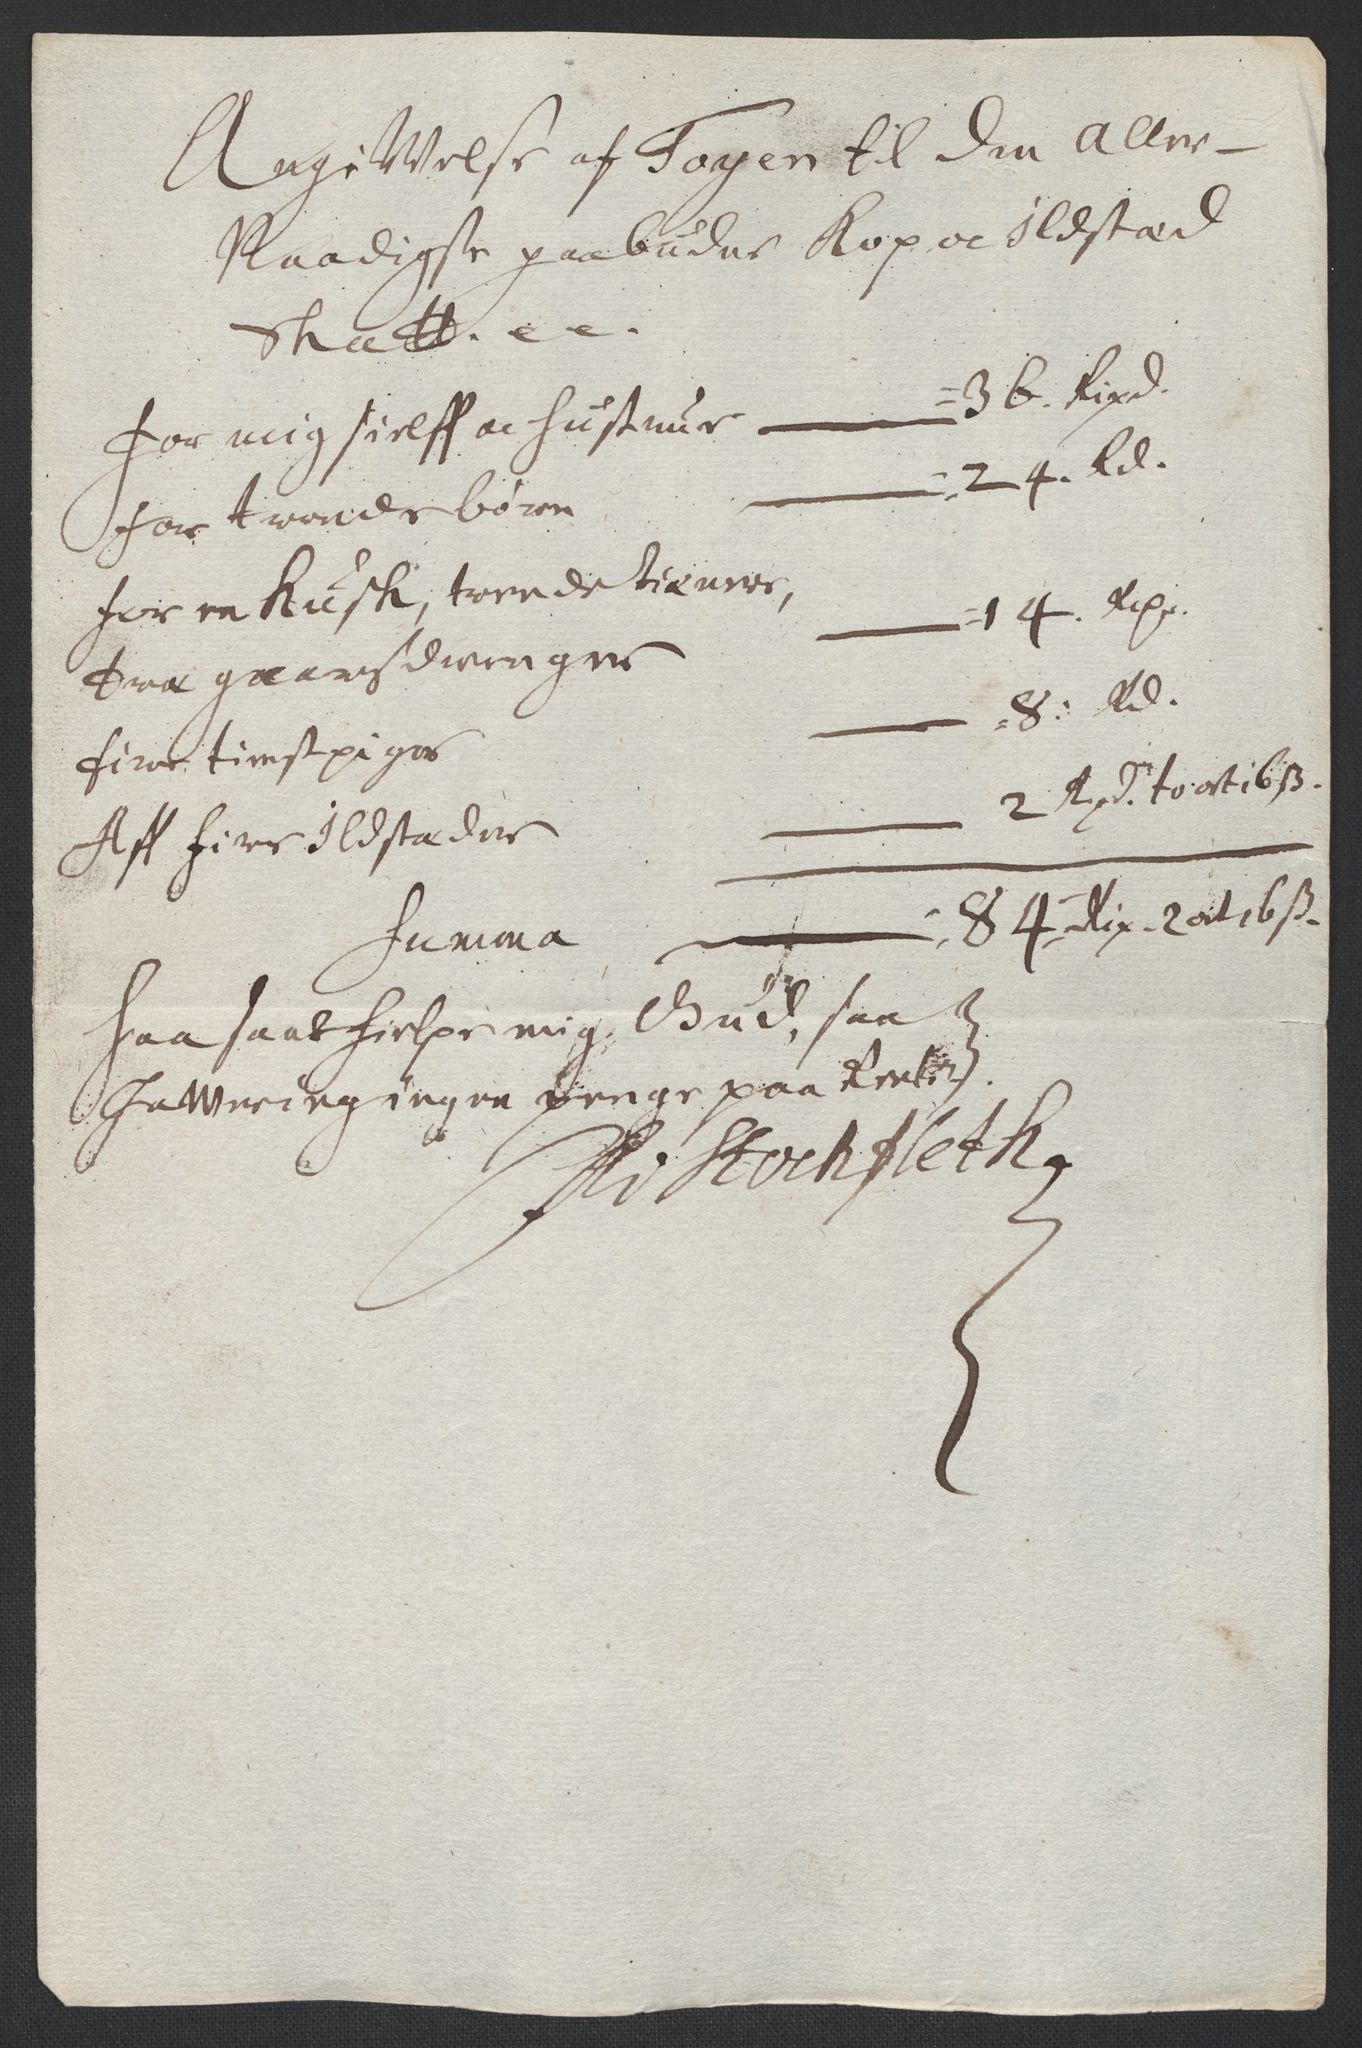 AngiWelse af Toyen til den aller-
Naadigste paabudne Kop oc Ildstæd
Skatt. e e.
for mig sielff oc hustrue = 36. Rixd.
for trende børn = 24. Rd.
for en Kusk, trende tienere,
tva gaarsdrenger = 14. Rixr.
fire tienstpiger = 8: Rd.
Aff fire Ildstæder 2 Rixd. to ort 16 ß.
Summa = 84 Rix. 2 ort 16 ß.
Saa sant hielpe mig Gud, saa
haWer ieg ingen penge paa Rente.
Stockfleth